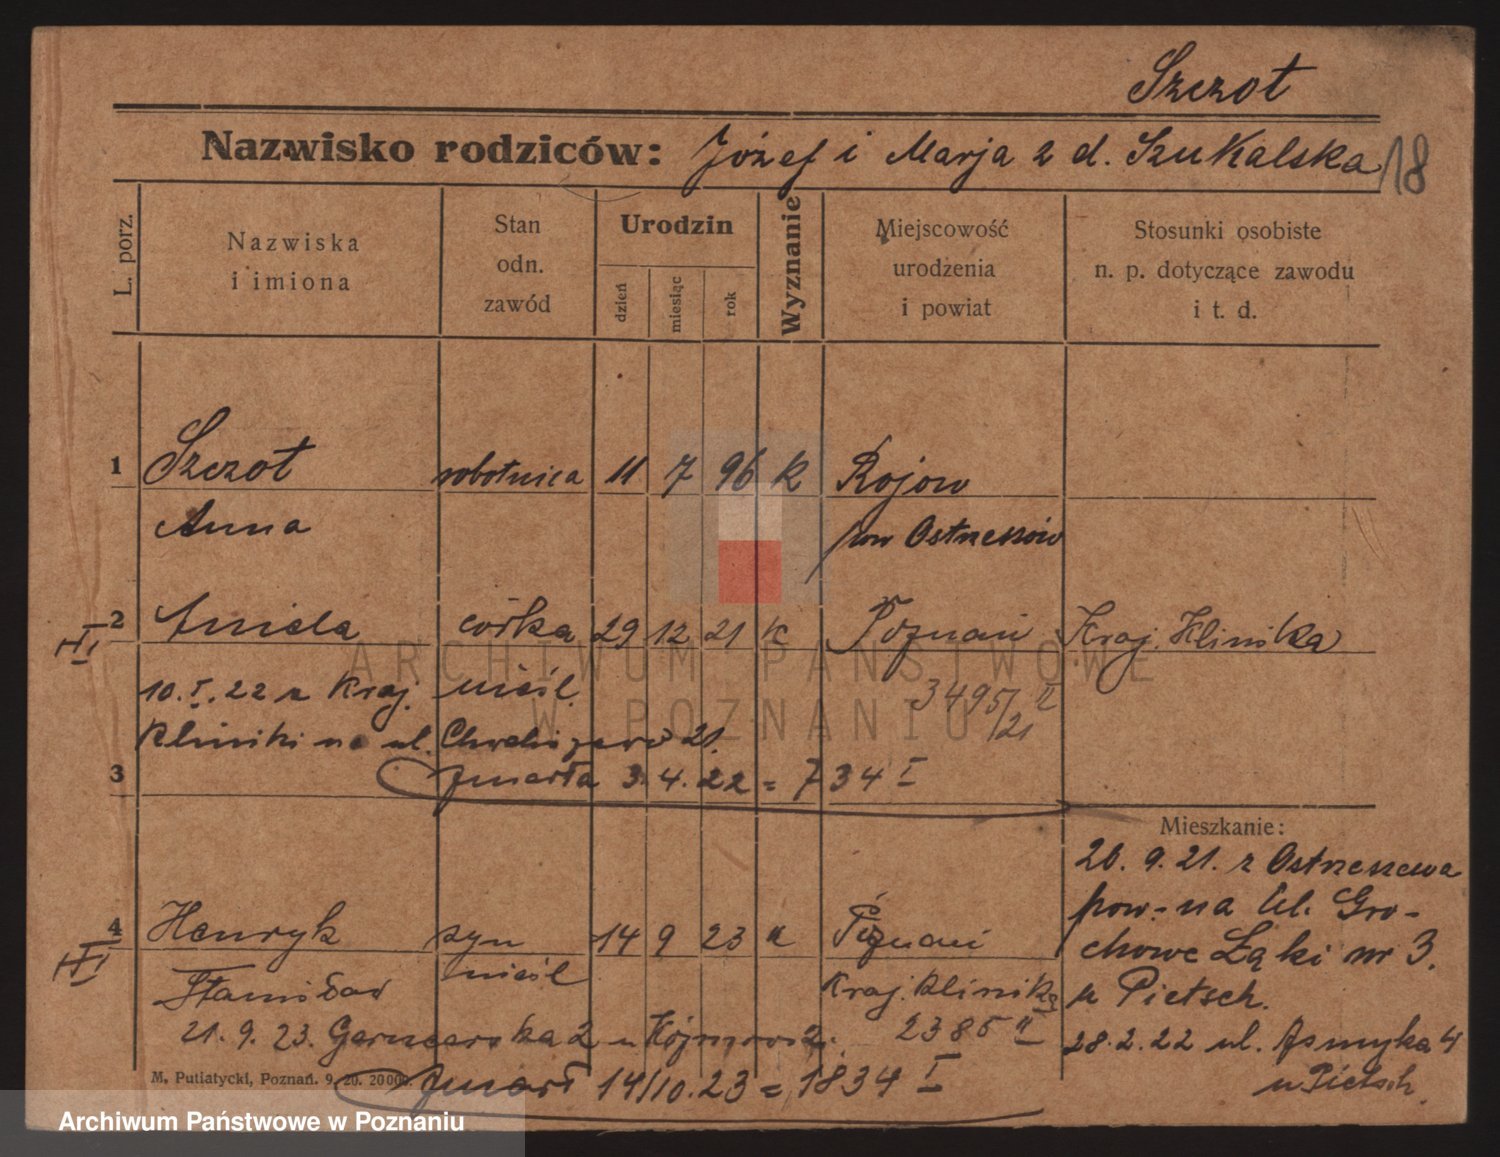 Szczot
Nazwisko rodziców: Józef i Marja z d. Szukalska 18
L. porz.
Nazwiska
i imiona
Stan
odn.
zawód
Urodzin
dzień
miesiąc
rok
Wyznanie
Miejscowość
urodzenia
i powiat
Stosunki osobiste
n. p. dotyczące zawodu
i t. d.
1 Szczot robotnica 11 7 96 k Rojow
Anna pow Ostrzeszów
2 Aniela córka 29 12 21 k Poznań Kraj. Klinika
III
10. I. 22 z Kraj. nieśl. 3495/21 II
Kliniki na ul. 21.
3 zmarła 3. 4. 22 = 734 I
Mieszkanie:
26. 9. 21. z Ostrzeszewa
pow. na Ul. Gro-
chowe Łąki nr 3.
u Pietsch.
28. 2. 22 ul. 4
u Pietsch.
4 Henryk syn 14 9 23 k Poznań
III
Stanisław nieśl Kraj. Klinika
21. 9. 23. Garncarska 2 u 2385 II
M. Putiatycki, Poznań. 9. 20. 2000.
zmarł 14/10. 23 = 1834 I
ARCHIWUM PAŃSTWOWE
W POZNANIU
Archiwum Państwowe w Poznaniu